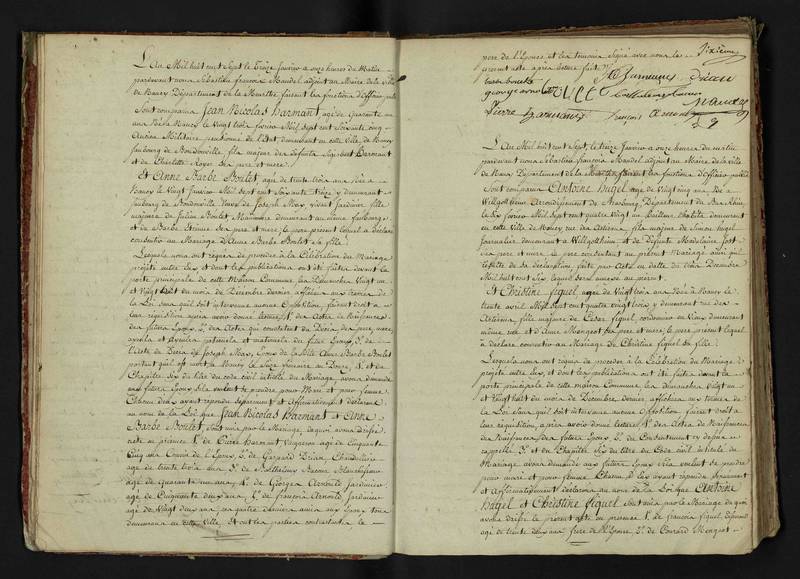 L'An Mil huit cent Sept le Treize janvier a onze heures du Matin
pardevant nous Sébastien françois Mandel adjoint au Maire de la ville
de Nancy Département de la Meurthe faisant les fonctions d'officier public
Sont comparus Jean Nicolas harmant, agé de quarante un
ans Né à Nancy le vingt trois janvier Mil sept cent soixante cinq
Ancien Militaire pensionné de l'Etat, demeurant en cette ville de Nancy
faubourg de Bondonville fils majeur des défunts Sigisbert harmant
et de Charlotte Royer Ses pere et mere
Et Anne Barbe Boulet, agée de trente trois ans Née à
Nancy le Vingt janvier Mil sept cent soixante Treize y demeurant
faubourg de Bondonville Veuve de Joseph vivant Jardinier fille
majeure de Julien Boulet demeurant au même faubourg
et de Barbe Etienne Ses pere et mere le pere présent lequel a déclaré
consentir au Mariage d'Anne Barbe Boulet sa fille
Lesquels nous ont requis de procéder à la Célébration du Mariage
projetté entre eux et dont les publications ont été faites devant la
porte principale de cette Maison Commune les Dimanches Vingt un
et Vingt huit du mois de Décembre dernier affichées aux termes de
la Loi sans qu'il soit intervenu aucune Opposition, faisant droit à
leur réquisition après avoir donné lecture 1° des Actes de Naissances
des futurs Epoux 2° des Actes qui constatent du Décès des pere, mere
ayeuls et Ayeules paternels et maternels du futur Epoux, 3° de
l'Acte de Décès de Joseph Epoux de ladite Anne Barbe Boulet
portant qu'il est mort à Nancy le Onze, 4° et du
Chapitre Six du titre du code civil intitulé du Mariage, avons demandé
aux futurs Epoux s'ils veulent se prendre pour Mari et pour femme
Chacun d'eux ayant répondu séparement et Affirmativement déclarons
au nom de la Loi que Jean Nicolas Harmant et Anne
Barbe Boulet, sont unis par le Mariage, de quoi avons dressé
acte en présence 1° de Harmant Vigneron agé de Cinquante
Cinq ans Cousin de l'Epoux 2° de Gaspard Drian,
agé de trente trois ans 3° de Barthelemy Blanchisseur
agé de quarante un ans, 4° de Georges Arnould Jardinier
agé de Cinquante deux ans, de françois Arnould Jardinier
agé de Vingt deux ans, ces quatre derniers amis aux Epoux tous
demeurans en cette Ville. Et ont les parties contractantes le
pere de l'Epouse et les temoins signé avec nous le
présent acte après lecture faite
Sixième
barbe boulet
george arnould
Pierre harmant
françois arnould
Mandel
L'An Mil huit cent Sept, le Treize Janvier a onze heures du matin
pardevant nous Sébastien françois Mandel adjoint au Maire de la ville
de Nancy Département de la Meurthe faisant les fonctions d'officier public
Sont comparus Antoine hugel agé de Vingt cinq ans Né à
Willgottheim Arrondissement de Strasbourg, Département du Bas Rhin,
le Six janvier Mil Sept cent quatre Vingt un demeurant
en cette Ville de Nancy rue des Artisans, fils majeur de Simon hugel
Journalier demeurant à Willgottheim et de Défunte Madelaine Jost
Ses pere et mere, le pere consentant au présent Mariage ainsi qu'il
résulte de sa déclaration faite par Acte en datte du deux Décembre
Mil huit cent six lequel sera annexé au présent
Et Christine figuel agée de Vingt trois ans Née à Nancy le
trente avril Mil sept cent quatre vingt trois y demeurant rue des
Artisans, fille majeure de César figuel cordonnier en Vieux demeurant
même rue et d'Anne Mongeot Ses pere et mere, le pere présent lequel
à déclaré consentir au Mariage de Christine figuel sa fille
Lesquels nous ont requis de procéder à la Célébration du Mariage
projetté entre eux, et dont les publications ont été faites devant la
porte principale de cette maison Commune les dimanches Vingt un
et Vingt huit du mois de Décembre dernier, affichées aux termes de
la Loi Sans qu'il soit intervenu aucune Opposition, faisant droit à
leur réquisition, après avoir donné lecture 1° des Actes de Naissances
des futurs Epoux 2° du Consentement cy dessus
rappellé 3° et du Chapitre Six du titre du Code civil intitulé du
Mariage avons demandé aux futurs Epoux s'ils veulent se prendre
pour mari et pour femme Chacun d'eux ayant répondu séparement
et Affirmativement déclarons au nom de la Loi que Antoine
Hugel et Christine figuel sont unis par le Mariage de quoi
avons dressé le présent acte en présence 1° de françois figuel
agé de trente deux ans frere de l'Epouse 2° de Conrard Mongeot